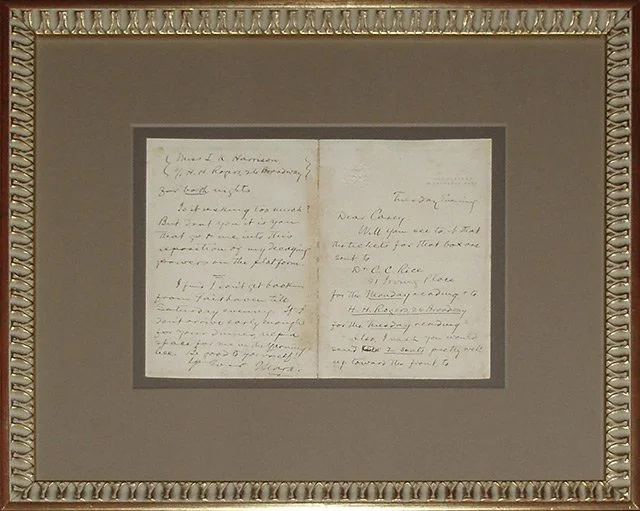 Tuesday Evening
Dear Carey
Will you see to it that
the tickets for that box are
sent to
Dr C. C. Rice
Irving Place
for the Monday reading & to
H. H. Rogers, 26 Broadway
for the Tuesday reading.
Also, I wish you would
send 2 seats pretty well
up toward the front to
Miss L R Harrison
H. H. Rogers 26 Broadway
for both nights
Is it asking too much?
But don't you it is you
that got me into this
exposition of my decaying
powers on the platform.
I find I can't get back
from Fairhaven till
Saturday evening. If I
don't arrive early enough
for your dinner
space for me in the
Be good to yourself!
Ever